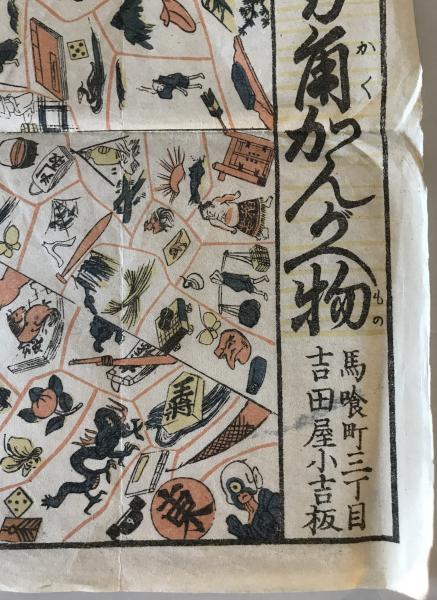 角かんがへ物
かく
もの
馬喰町三丁目
吉田屋小吉板
王将
東